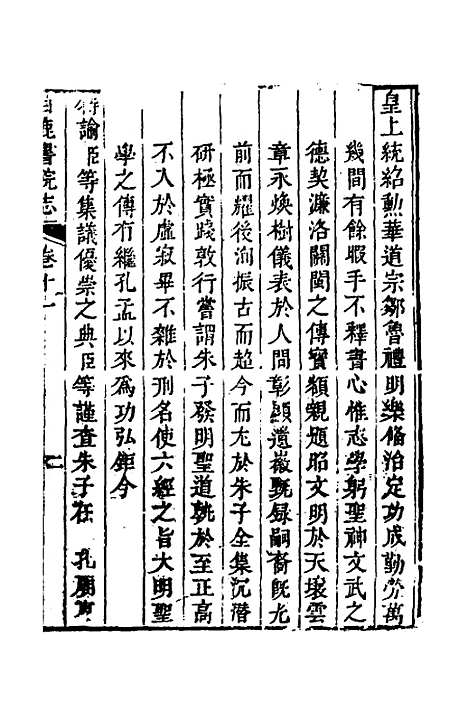 皇上統紹勳華道宗鄒魯禮明樂備治定功成勤勞萬
幾間有餘暇手不釋書心惟志學躬聖神文武之
德契濂洛關閩之傳寶額親題昭文明於天壤雲
章永煥樹儀表於人間彰顯遺徽甄錄嗣裔旣光
前而耀後洵振古而超今而尤於朱子全集沉潛
研極實踐敦行嘗謂朱子發明聖道軼於至正高
不入於虛寂卑不雜於刑名使六經之旨大明聖
學之傳有繼孔孟以來爲功弘鉅今
特諭臣等集議優崇之典臣等謹查朱子在 孔廟東
白鹿書院志 卷十一 二